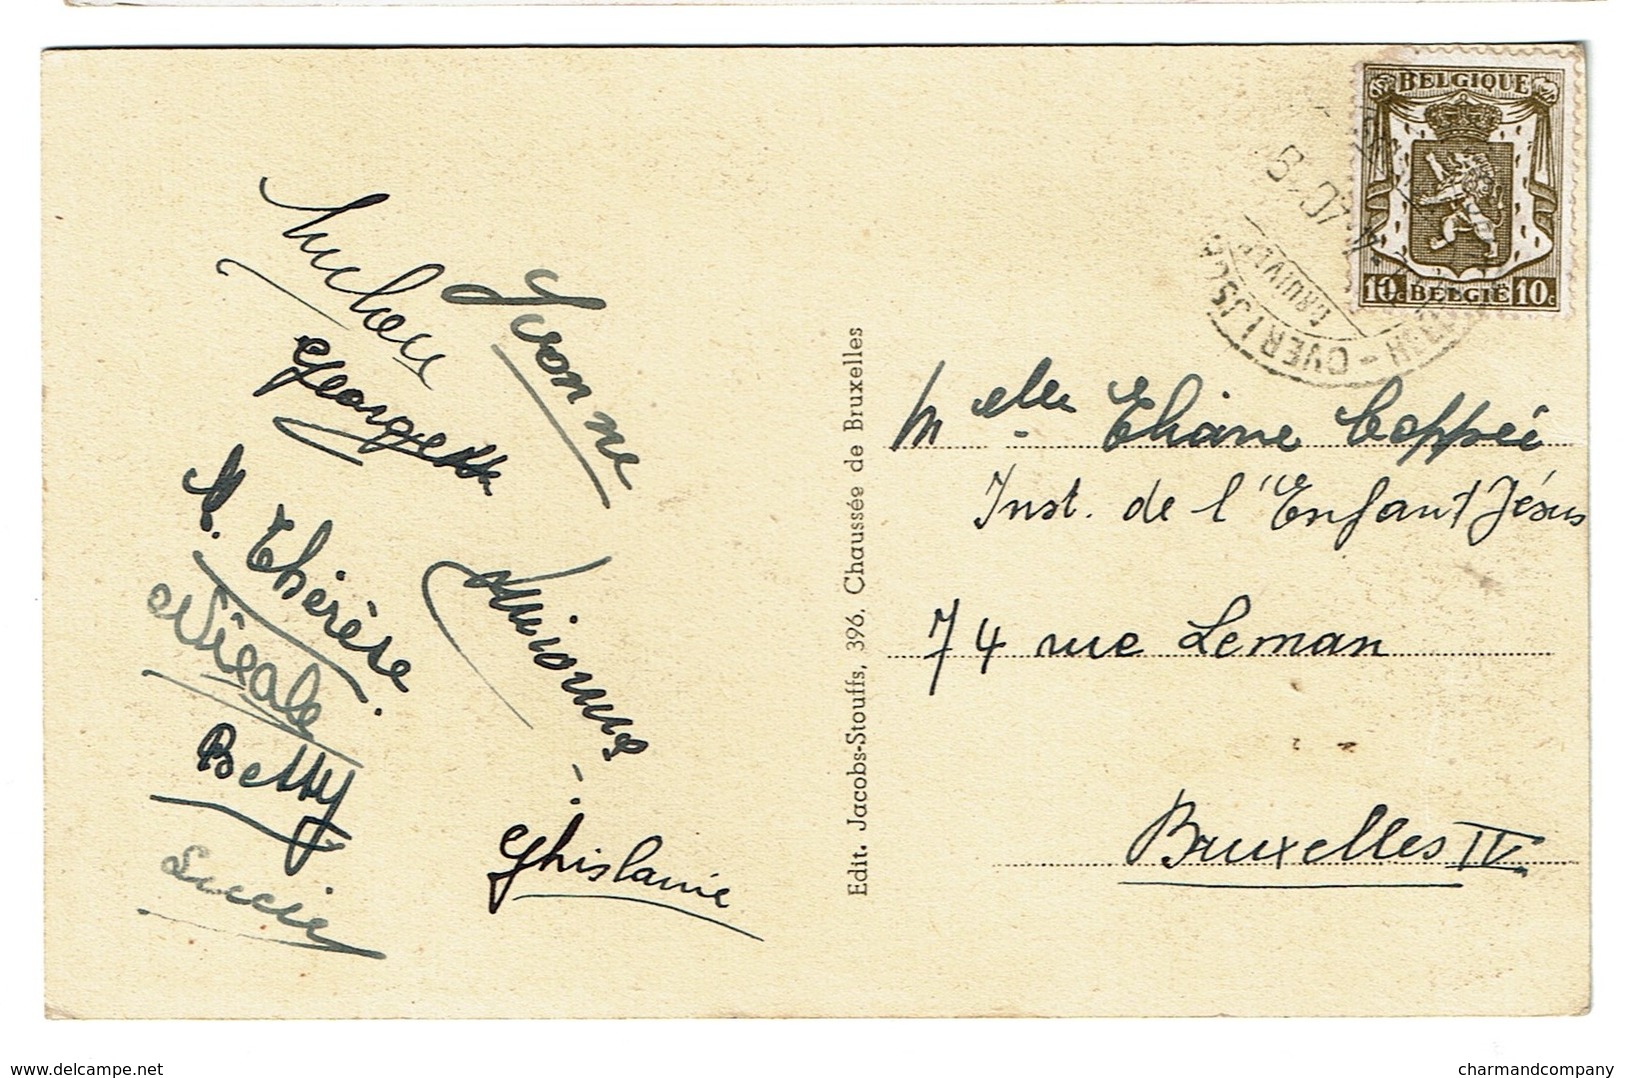 Yvonne
Georgette
M. Thérèse.
Nicole
Betty
Lucie
Simonne
Ghislaine
Edit. Jacobs-Stouffs, 396, Chaussée de Bruxelles
BELGIQUE
10c BELGIË 10c
OVERIJSCHE
Melle Eliane Coppée
Inst. de l'Enfant Jésus
74 rue Leman
Bruxelles IV
www.delcampe.net
charmandcompany